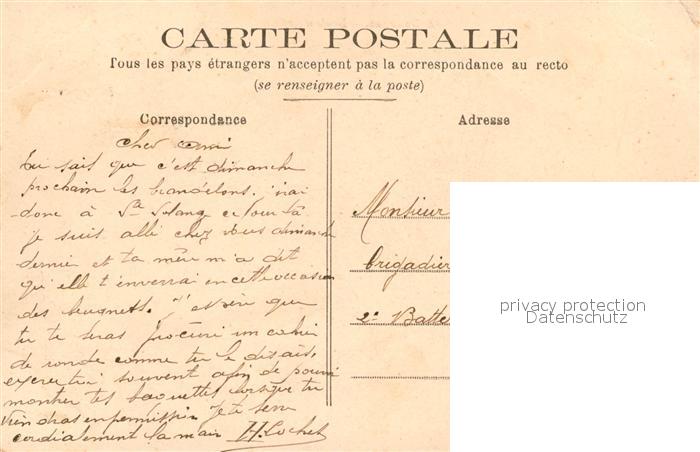 CARTE POSTALE
Tous les pays étrangers n'acceptent pas la correspondance au recto
(se renseigner à la poste)
Correspondance
Cher ami
tu sais que c'est dimanche
prochain les brandelons. j'irai
donc à Ste Solange ce jour là
je suis allé chez vous dimanche
dernier et ta mère m'a dit
qu'elle t'enverrai en cette occasion
des beugnets. J'espère que
tu te seras procuré un cahier
de ronde comme tu le disais,
souvent afin de pouvoir
montrer tes baguettes lorsque tu
viendras en permission Je te serre
cordialement la main H. Lochet
Adresse
Monsieur
Brigadier
2e Batte
privacy protection
Datenschutz